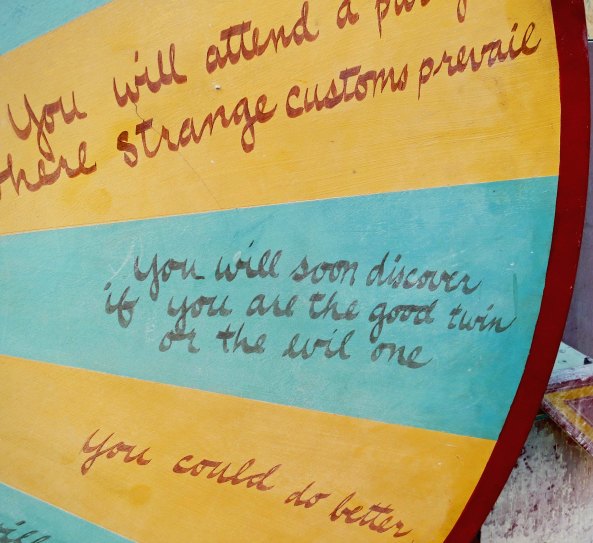 You will attend a party
where strange customs prevail
You will soon discover
if you are the good twin
or the evil one
You could do better
will